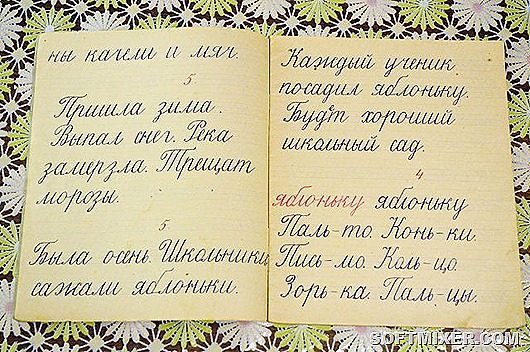 ны качели и мяч.
5
Пришла зима.
Выпал снег. Река
замерзла. Трещат
морозы.
5
Была осень. Школьники
сажали яблоньки.
Каждый ученик
посадил яблоньку.
Будет хороший
школьный сад.
4
яблоньку яблоньку
Паль-то. Конь-ки.
Пись-мо. Коль-цо.
Зорь-ка. Паль-цы.
SOFTMIXER.COM